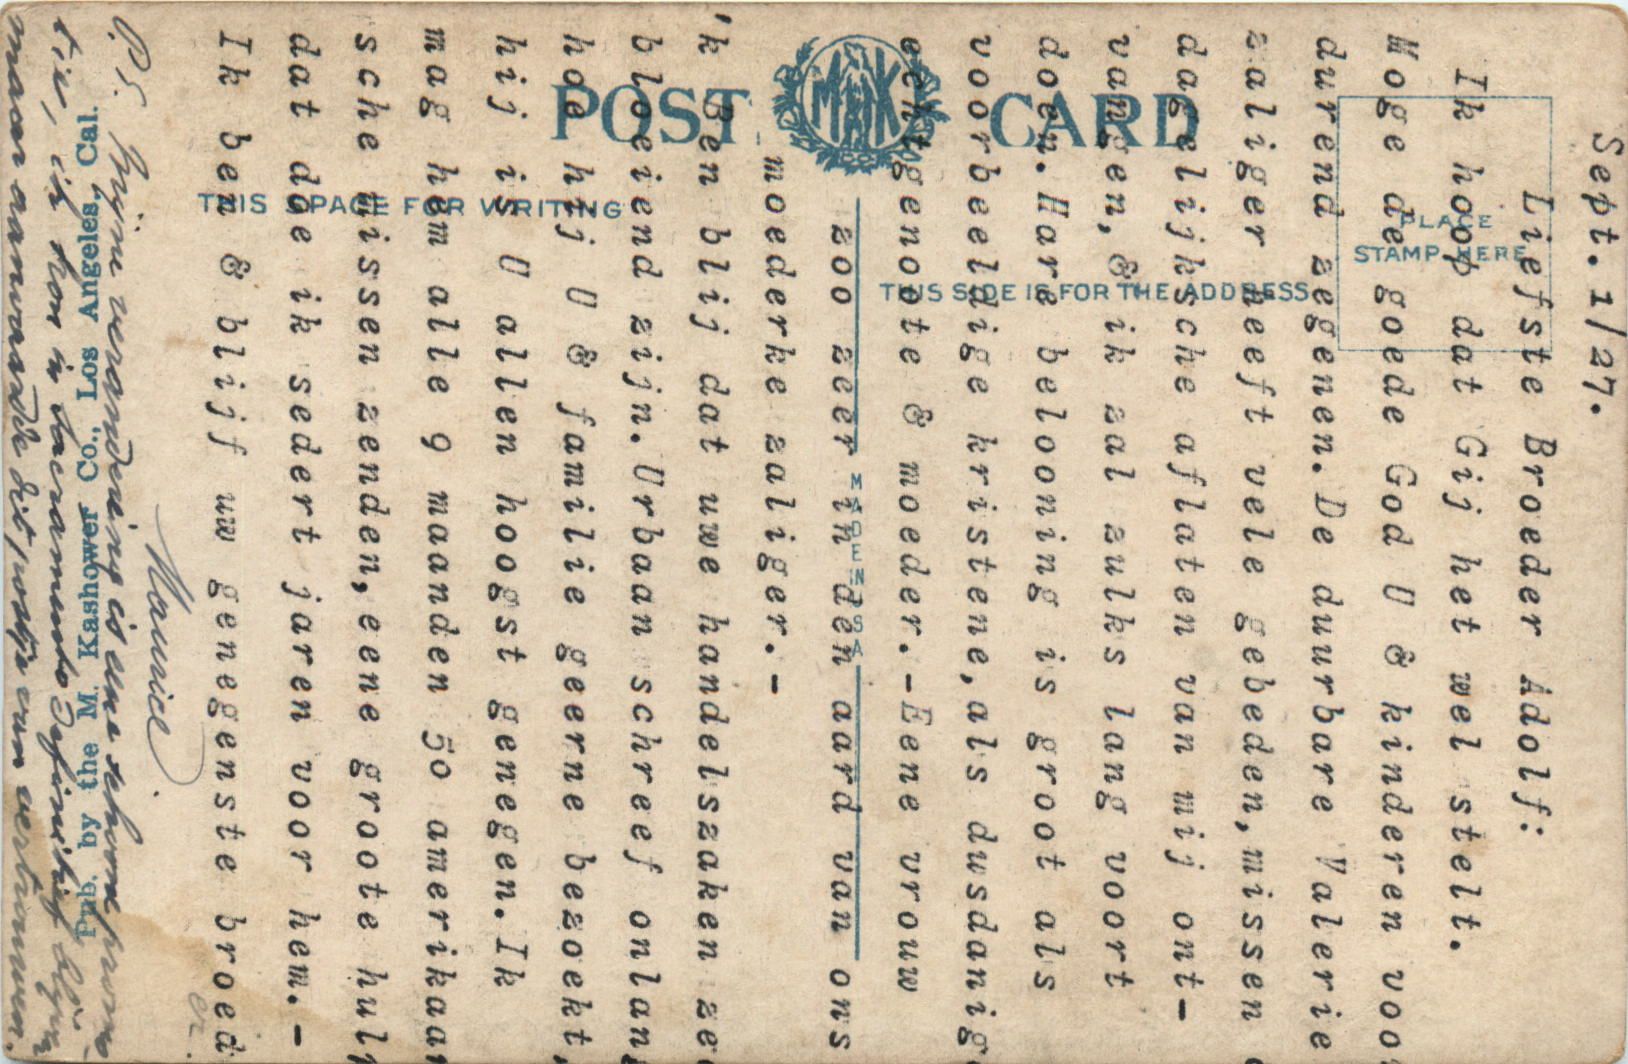 POST CARD
M K
CO
THIS SPACE FOR WRITING
THIS SIDE IS FOR THE ADDRESS
PLACE
STAMP HERE
MADE IN USA
Pub. by the M. Kashower Co., Los Angeles, Cal.
Sept. 1/27.
Liefste Broeder Adolf:
Ik hoop dat Gij het wel stelt.
Moge de goede God U & kinderen voo
durend zegenen. De duurbare Valerie
zaliger heeft vele gebeden, missen
dagelijksche aflaten van mij ont-
vangen, & ik zal zulks lang voort
doen. Hare belooning is groot als
voorbeeldige kristene, als dusdanig
echtgenoote & moeder.-Eene vrouw
zoo zeer in den aard van ons
moederke zaliger.-
'k Ben blij dat uwe handelszaken ze
bloeiend zijn. Urbaan schreef onlang
hoe hij U & familie geerne bezoekt,
hij is U allen hoogst genegen. Ik
mag hem alle 9 maanden 50 amerikaan
sche missen zenden, eene groote hulp
dat doe ik sedert jaren voor hem.-
Ik ben & blijf uw genegenste broed
er.
Maurice.
P.S. Mijne verandering is eene schoone promo
tie, ik kon in Sacramento definitief blijven
maar aanvaardde dit postje van vertrouwen.